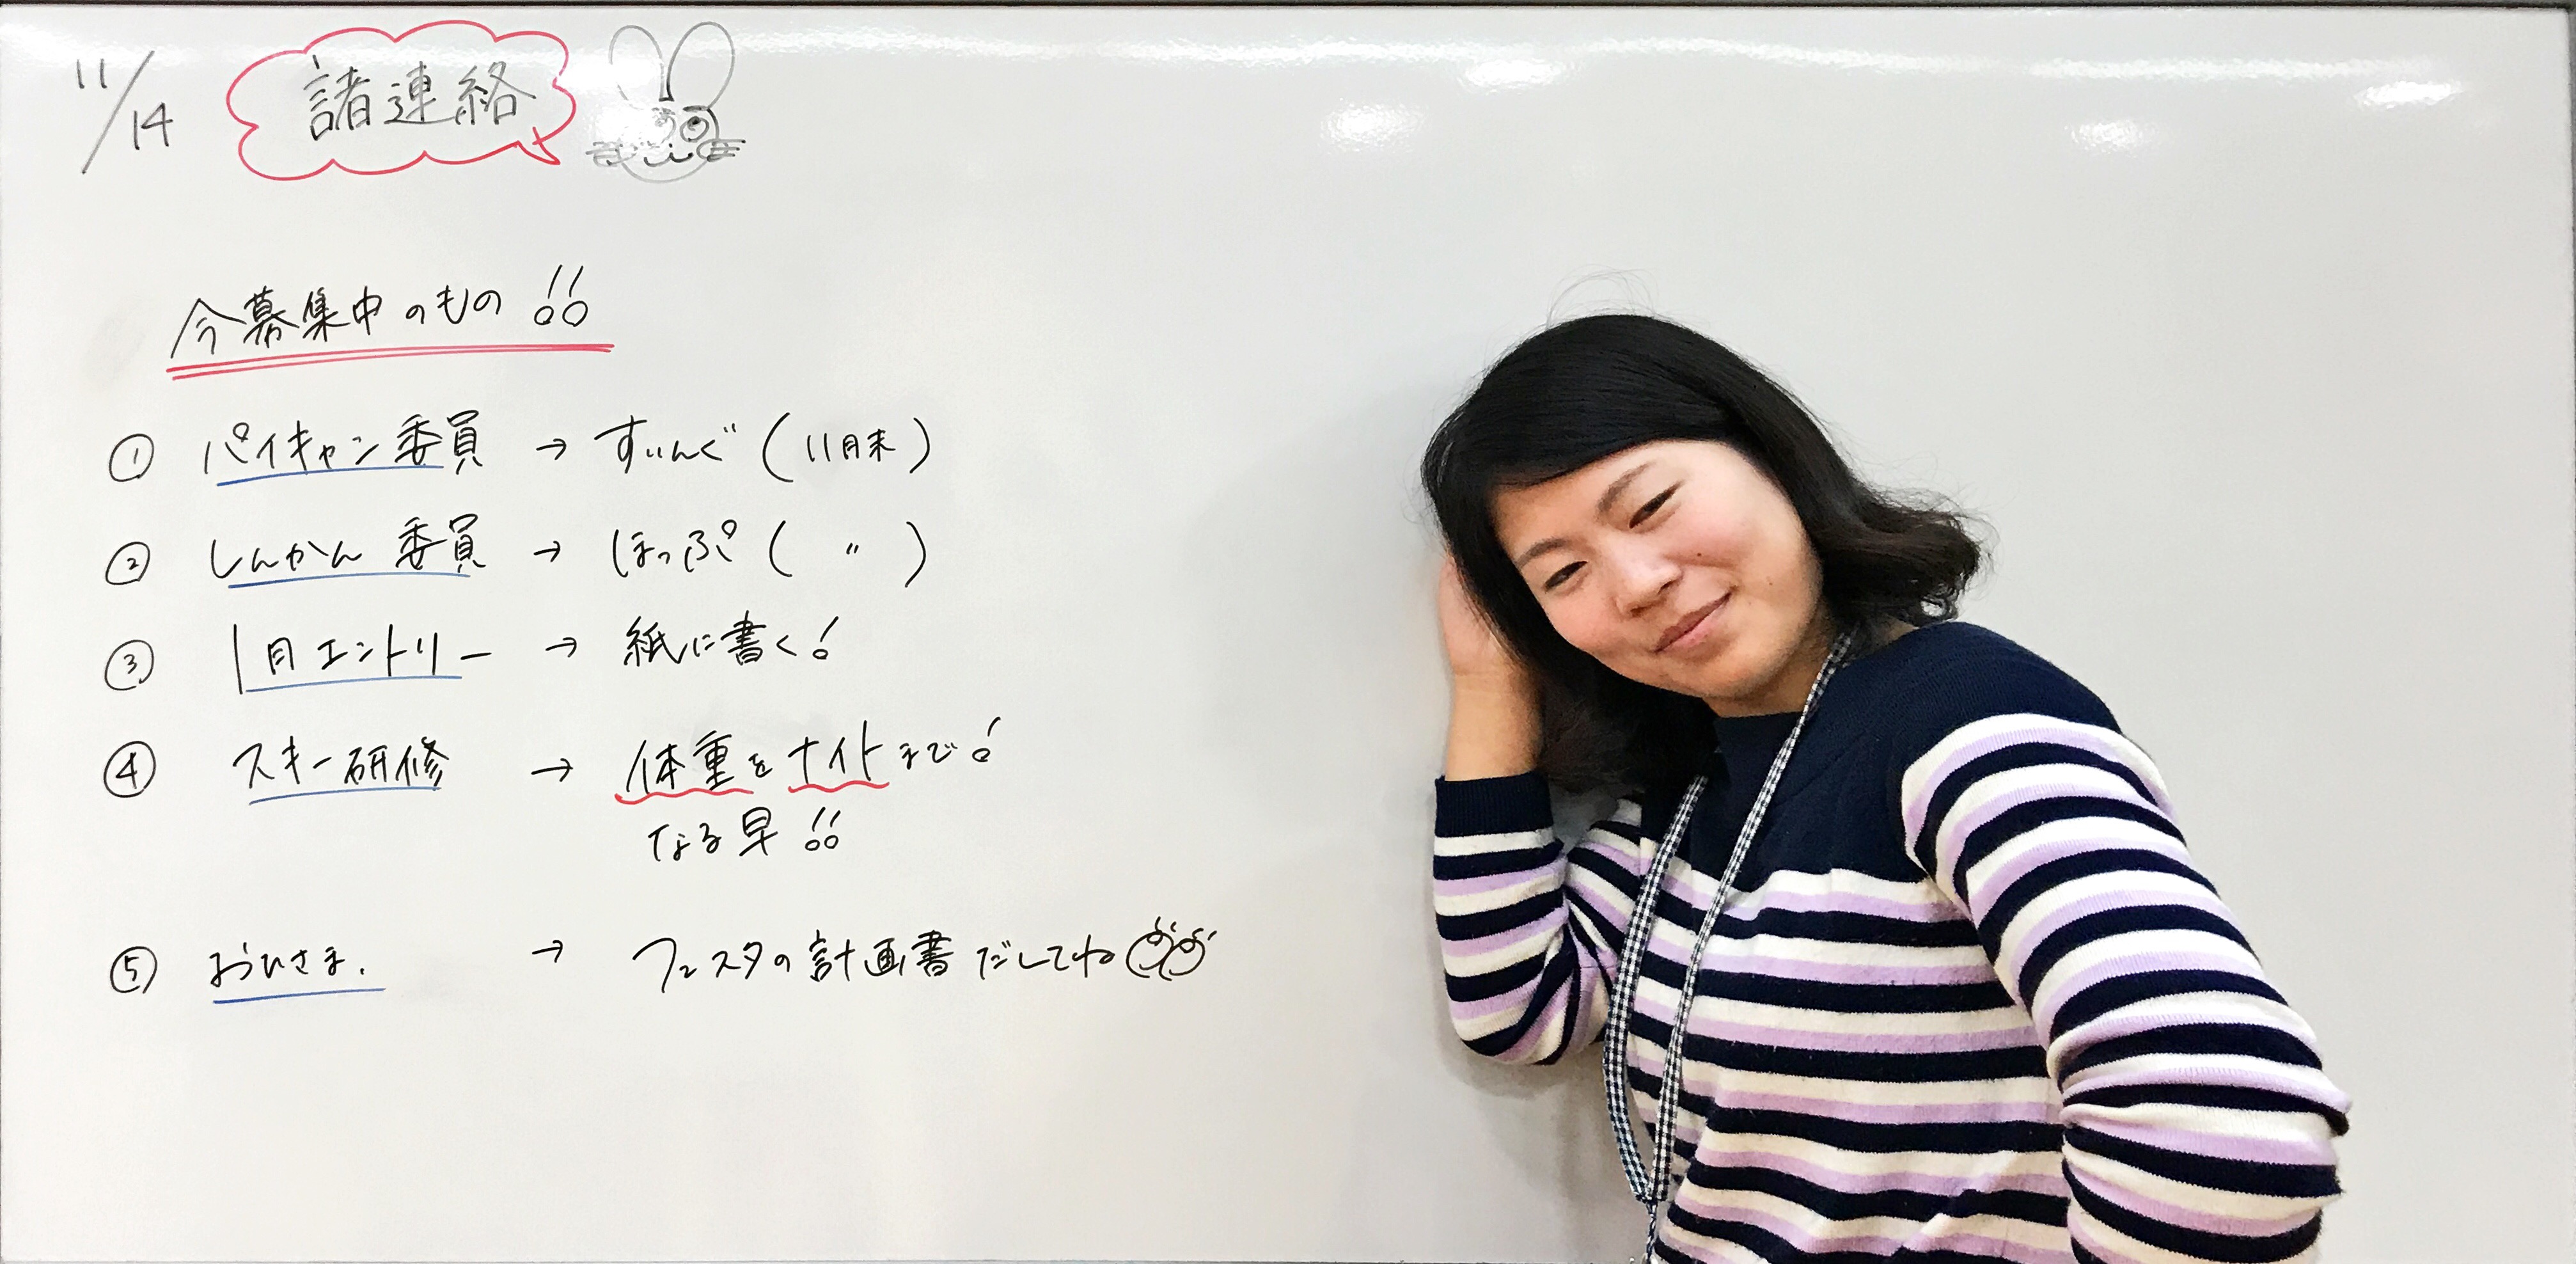 11/14 諸連絡
今募集中のもの!!
① パイキャン委員 → すいんぐ (11月末)
② しんかん委員 → ほっぷ ( 〃 )
③ 1月エントリー → 紙に書く!
④ スキー研修 → 体重をナイトまで!
なる早!!
⑤ おひさま. → フェスタの計画書だしてね